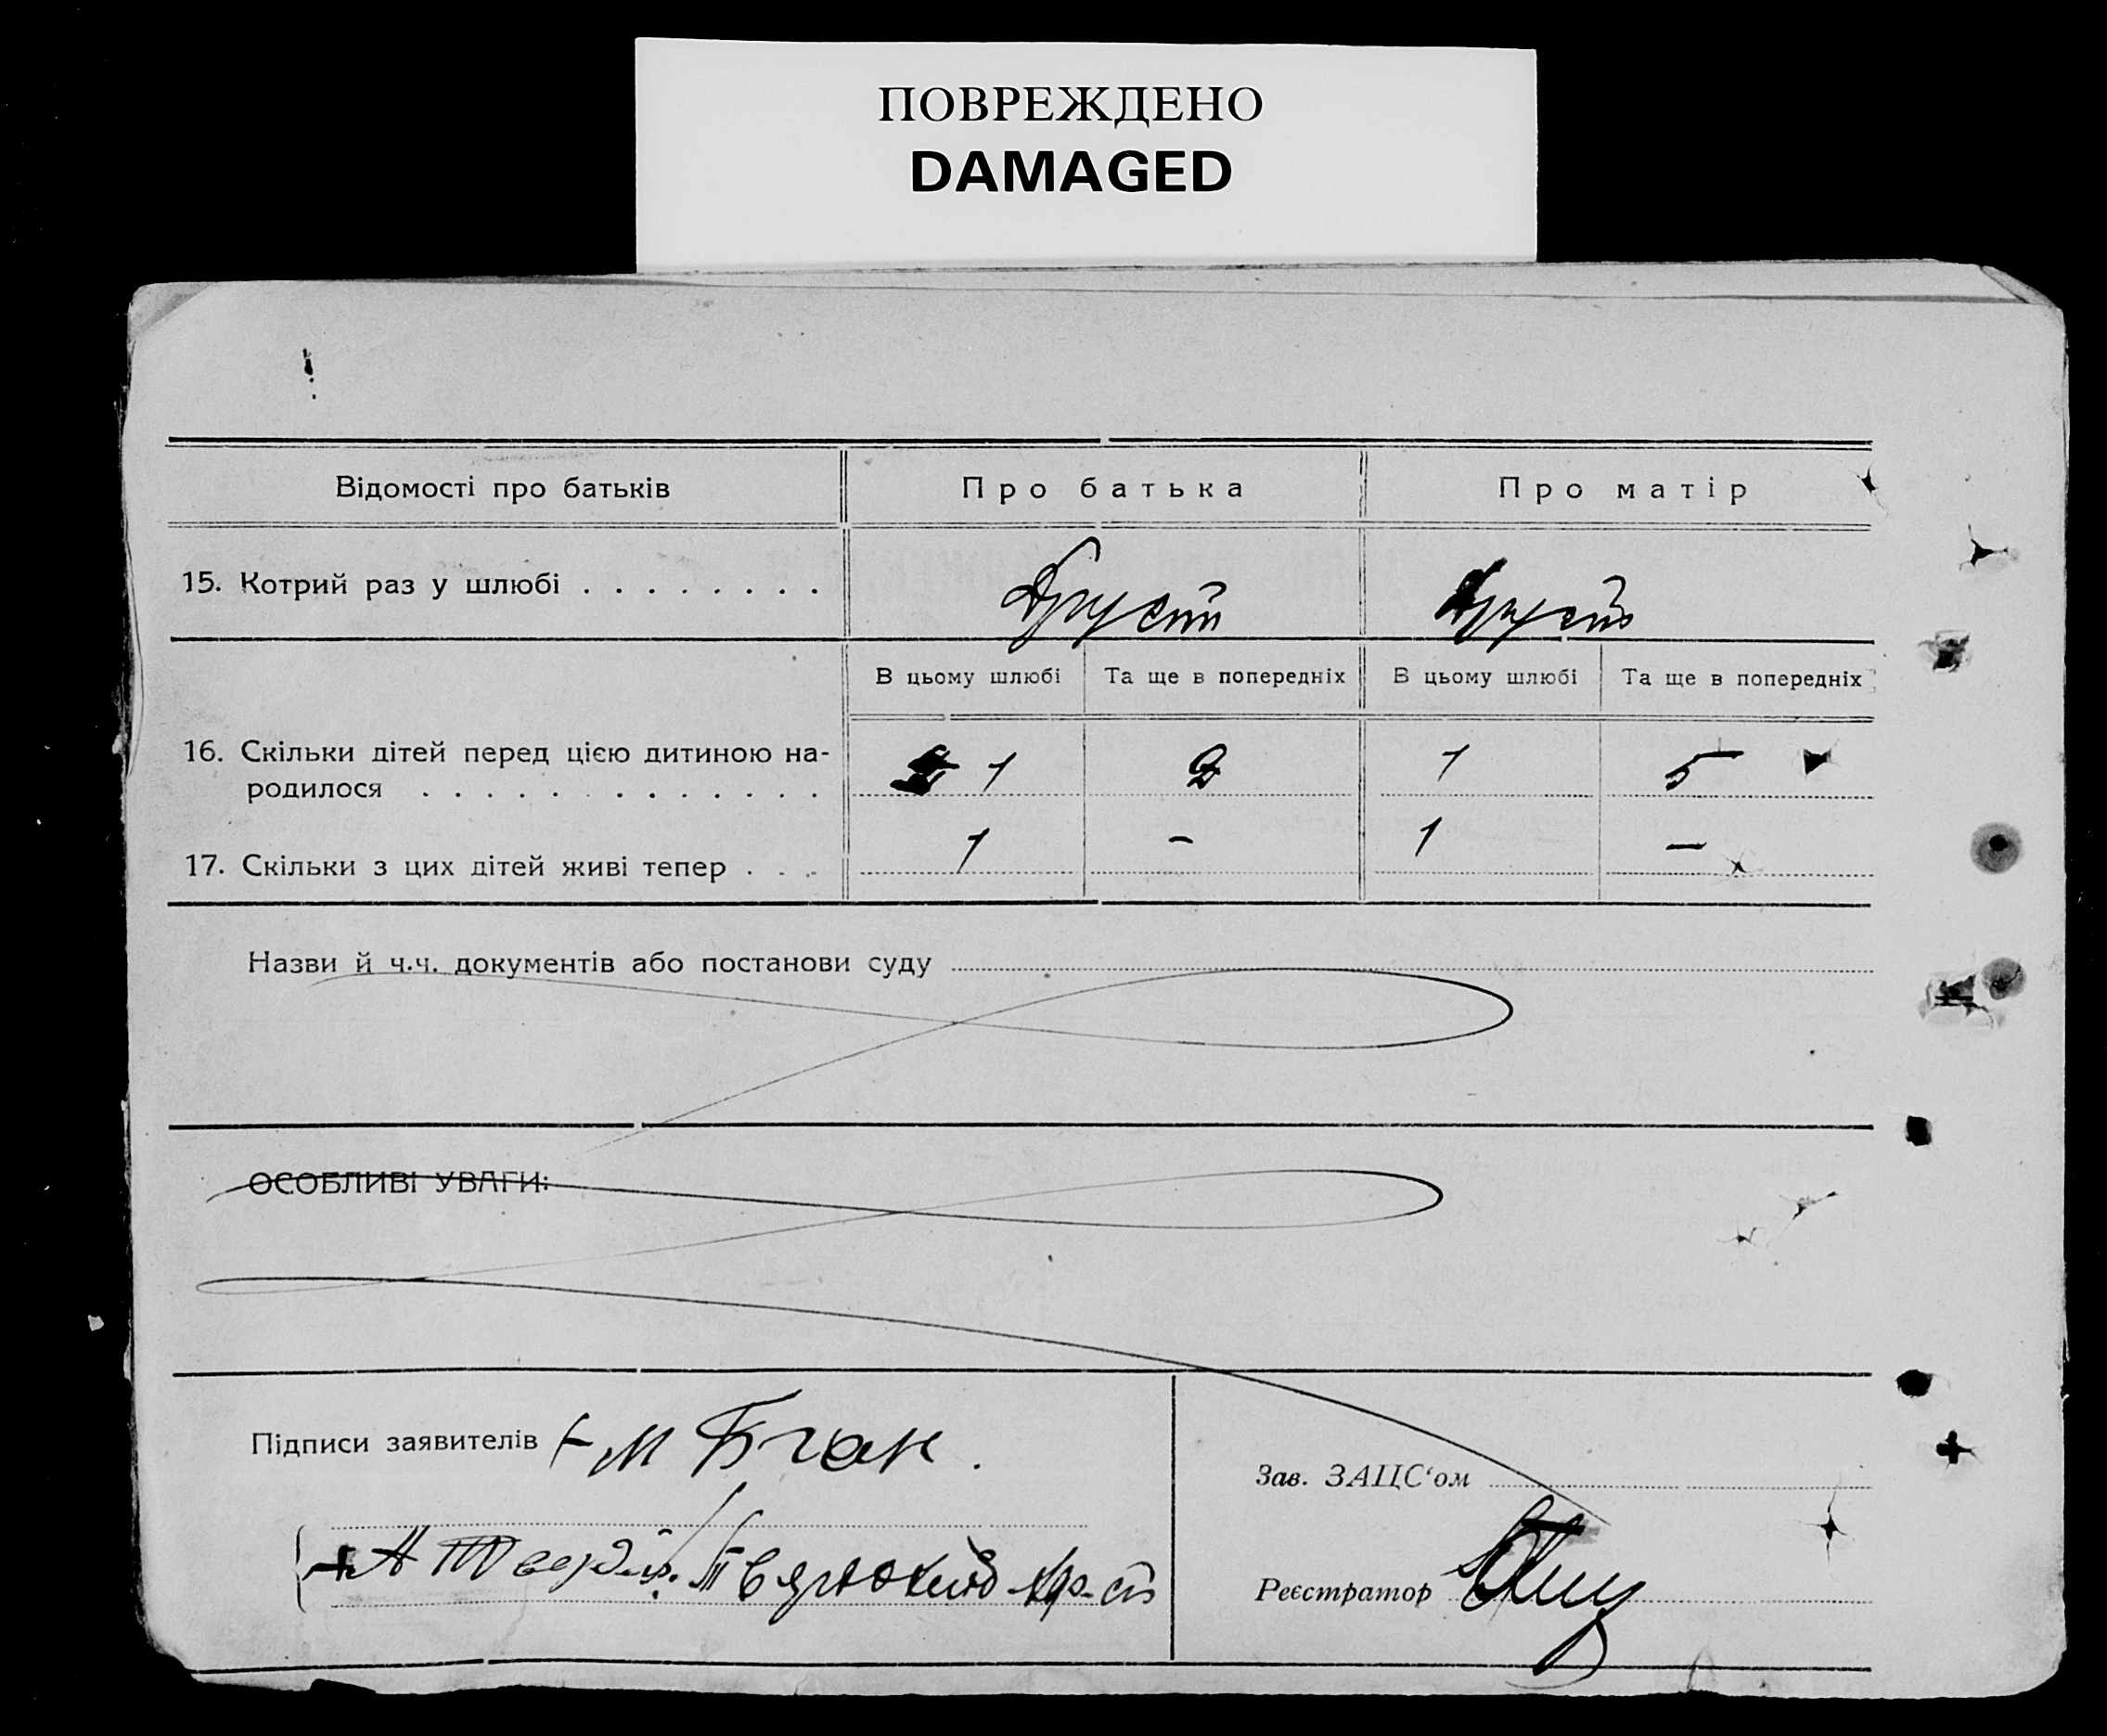 ПОВРЕЖДЕНО
DAMAGED
Відомості про батьків Про батька Про матір
15. Котрий раз у шлюбі . . . . . . . .
В цьому шлюбі Та ще в попередніх В цьому шлюбі Та ще в попередніх
16. Скільки дітей перед цією дитиною на-
родилося . . . . . . . . . . . . . 1 2 1 5
17. Скільки з цих дітей живі тепер . . . 1 - 1 -
Назви й ч.ч. документів або постанови суду
ОСОБЛИВІ УВАГИ:
Підписи заявителів
Зав. ЗАЦС‘ом
Реєстратор